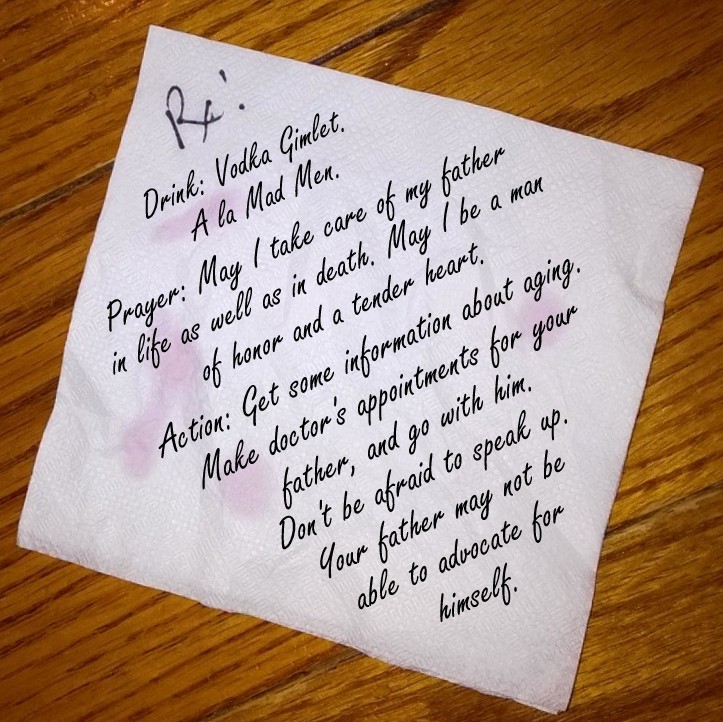 Rx!
Drink: Vodka Gimlet.
A la Mad Men.
Prayer: May I take care of my father
in life as well as in death. May I be a man
of honor and a tender heart.
Action: Get some information about aging.
Make doctor's appointments for your
father, and go with him.
Don't be afraid to speak up.
Your father may not be
able to advocate for
himself.